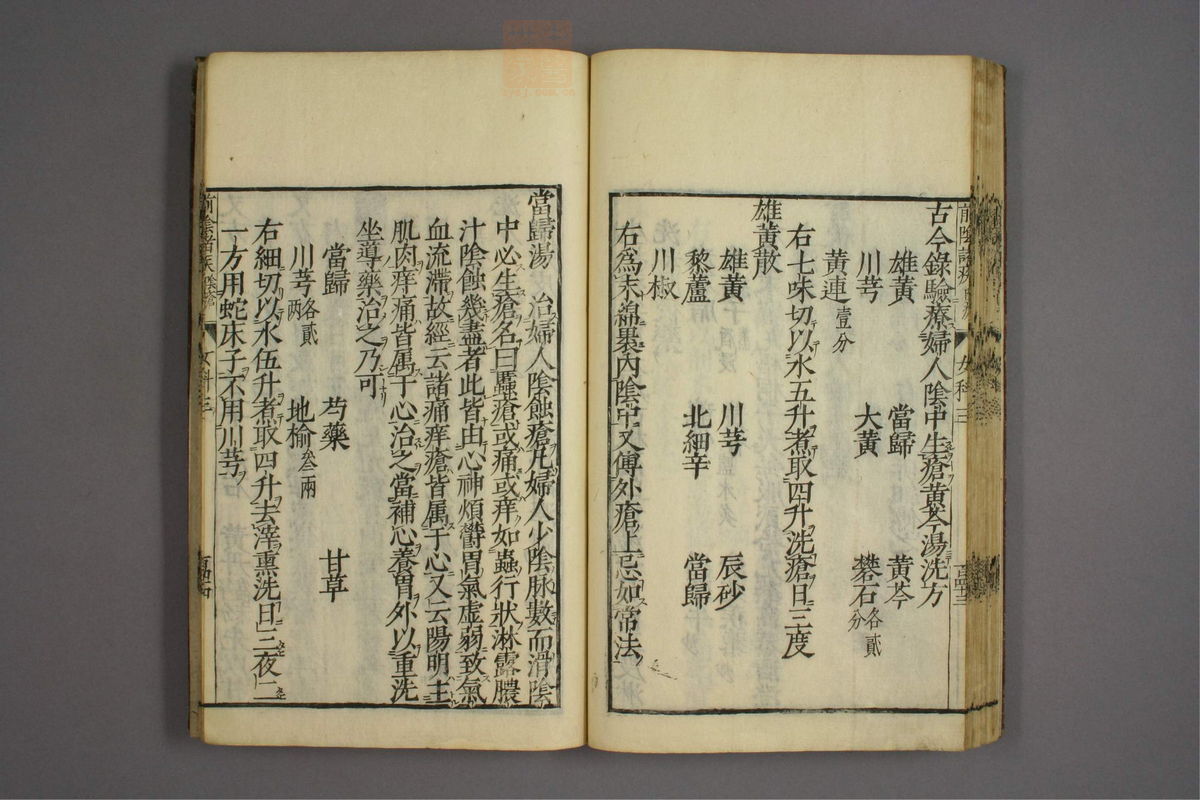 古今錄驗療婦人陰中生瘡黃芩湯洗方
雄黃 當歸 黃芩
川芎 大黃 礬石各貳分
黃連壹分
右七味切以水五升煮取四升洗瘡日三度
雄黃散
雄黃 川芎 辰砂
藜蘆 北細辛 當歸
川椒
右爲末綿裹內陰中又傅外瘡上忌如常法
當歸湯 治婦人陰蝕瘡凡婦人少陰脉數而滑陰
中必生瘡名曰䘌瘡或痛或痒如蟲行狀淋露膿
汁陰蝕幾盡者此皆由心神煩鬱胃氣虛弱致氣
血流滯故經云諸痛痒瘡皆属于心又云陽明主
肌肉痒痛皆属于心治之當補心養胃外以重洗
坐導藥治之乃可
當歸 芍藥 甘草
川芎各貳两 地榆叄兩
右細切以水伍升煮取四升去滓熏洗日三夜二
一方用蛇床子不用川芎
女科三